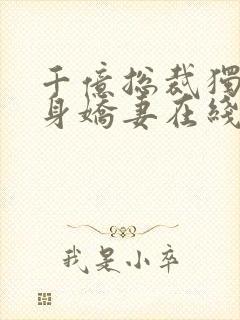 千億総裁獨
身嬌妻在綫
我是小卒